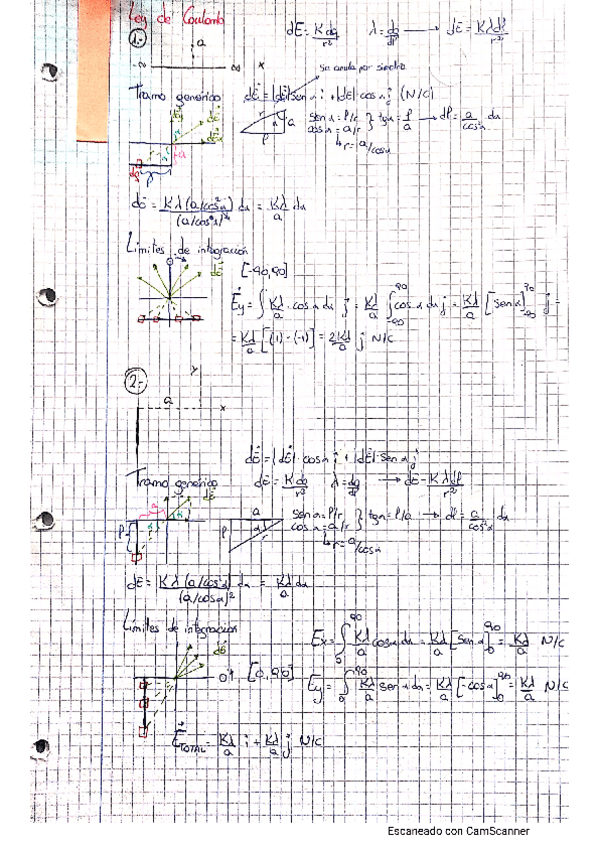 Ley de Coulomb
dE = Kdq/r² λ = dq/dl → dE = Kλdl/r²
1:-
a
-∞ ∞ x
Se anula por simetría
Tramo genérico dE = |dE| sen α i + |dE| cos α j (N/C)
sen α = l/r } tg α = l/a → dl = a/cos²α dα
cos α = a/r
↳ r = a/cos α
dE = Kλ(a/cos²α) dα/(a/cos α)² = Kλ/a dα
Límites de integración
[-90,90]
Ey = ∫ Kλ/a · cos α dα j = Kλ/a ∫ cos α dα j = Kλ/a [sen α] j =
= Kλ/a [(1) - (-1)] = 2Kλ/a j N/C
2:-
y
a
x
dE = |dE| · cos α i + |dE| · sen α j
Tramo genérico dE = Kdq/r² λ = dq/dl → dE = Kλdl/r²
sen α = l/r } tg α = l/a → dl = a/cos²α dα
cos α = a/r
↳ r = a/cos α
dE = Kλ(a/cos²α) dα/(a/cos α)² = Kλ/a dα
Límites de integración
Ex = ∫ Kλ/a cos α dα = Kλ/a [sen α] = Kλ/a N/C
[0,90]
Ey = ∫ Kλ/a sen α dα = Kλ/a [-cos α] = Kλ/a N/C
E TOTAL = Kλ/a i + Kλ/a j N/C
Escaneado con CamScanner